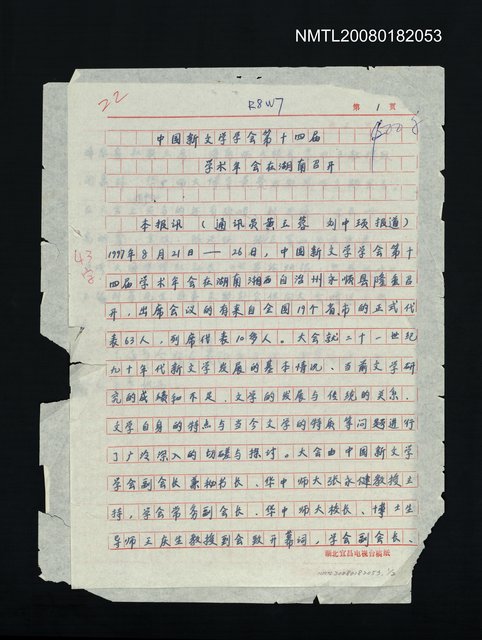 NMTL20080182053
22
R8W7
第 1 页
中国新文学学会第十四届
学术年会在湖南召开
本报讯 (通讯员黄玉蓉 刘中顼报道)
43
1997年8月21日——26日,中国新文学学会第十
四届学术年会在湖南湘西自治州永顺县隆重召
开,出席会议的有来自全国19个省市的正式代
表63人,列席代表10多人。大会就二十一世纪
九十年代新文学发展的基本情况、当前文学研
究的成绩和不足、文学的发展与传统的关系、
文学自身的特点与当今文学的特质等问题进行
了广泛深入的切磋与探讨。大会由中国新文学
学会副会长兼秘书长、华中师大张永健教授主
持,学会常务副会长、华中师大校长、博士生
导师王庆生教授到会致开幕词,学会副会长、
湖北宜昌电视台稿纸
NMTL20080182053, 1/2